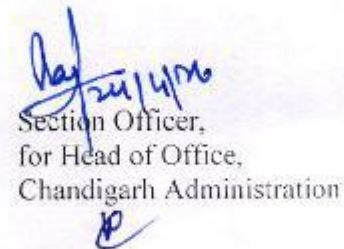 24/4/26
Section Officer,
for Head of Office,
Chandigarh Administration